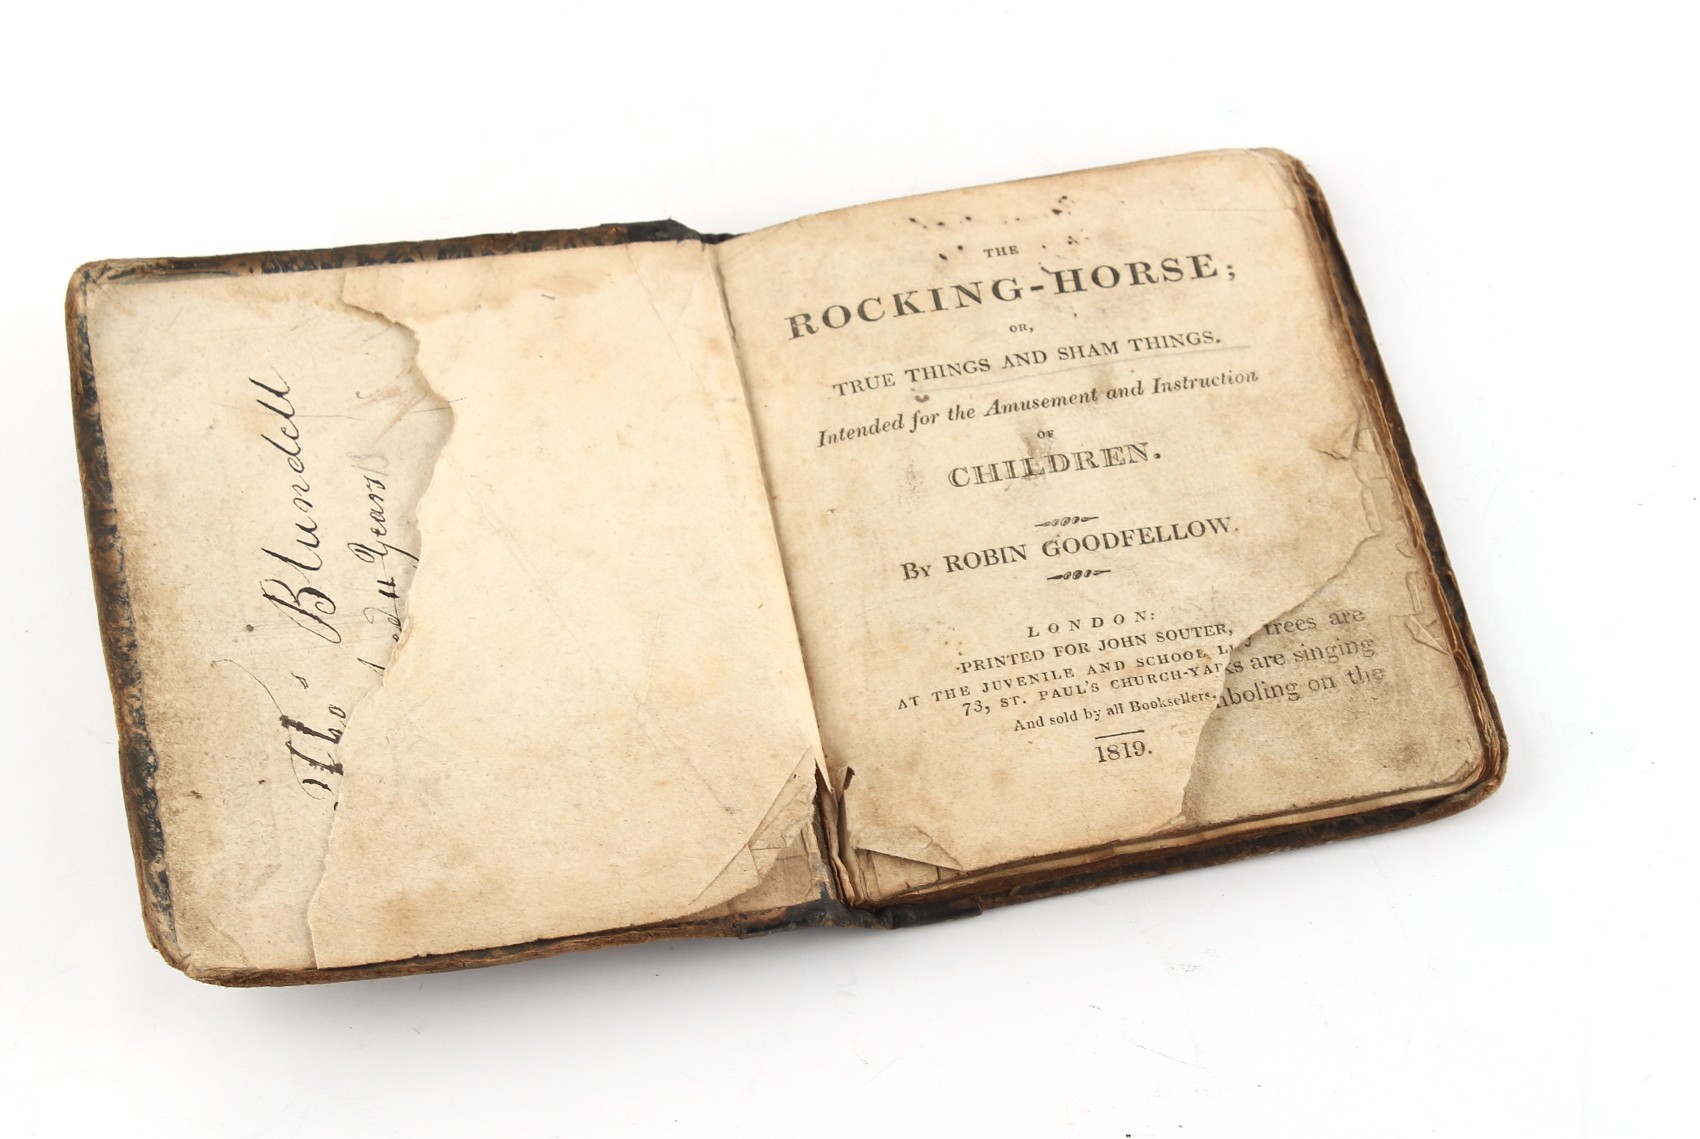 Thos Blundell
Years
THE
ROCKING-HORSE;
OR,
TRUE THINGS AND SHAM THINGS.
Intended for the Amusement and Instruction
OF
CHILDREN.
By ROBIN GOODFELLOW.
LONDON:
PRINTED FOR JOHN SOUTER,
AT THE JUVENILE AND SCHOOL
73, ST. PAUL'S CHURCH-YARD
And sold by all Booksellers.
1819.
trees are
are singing
boling on the